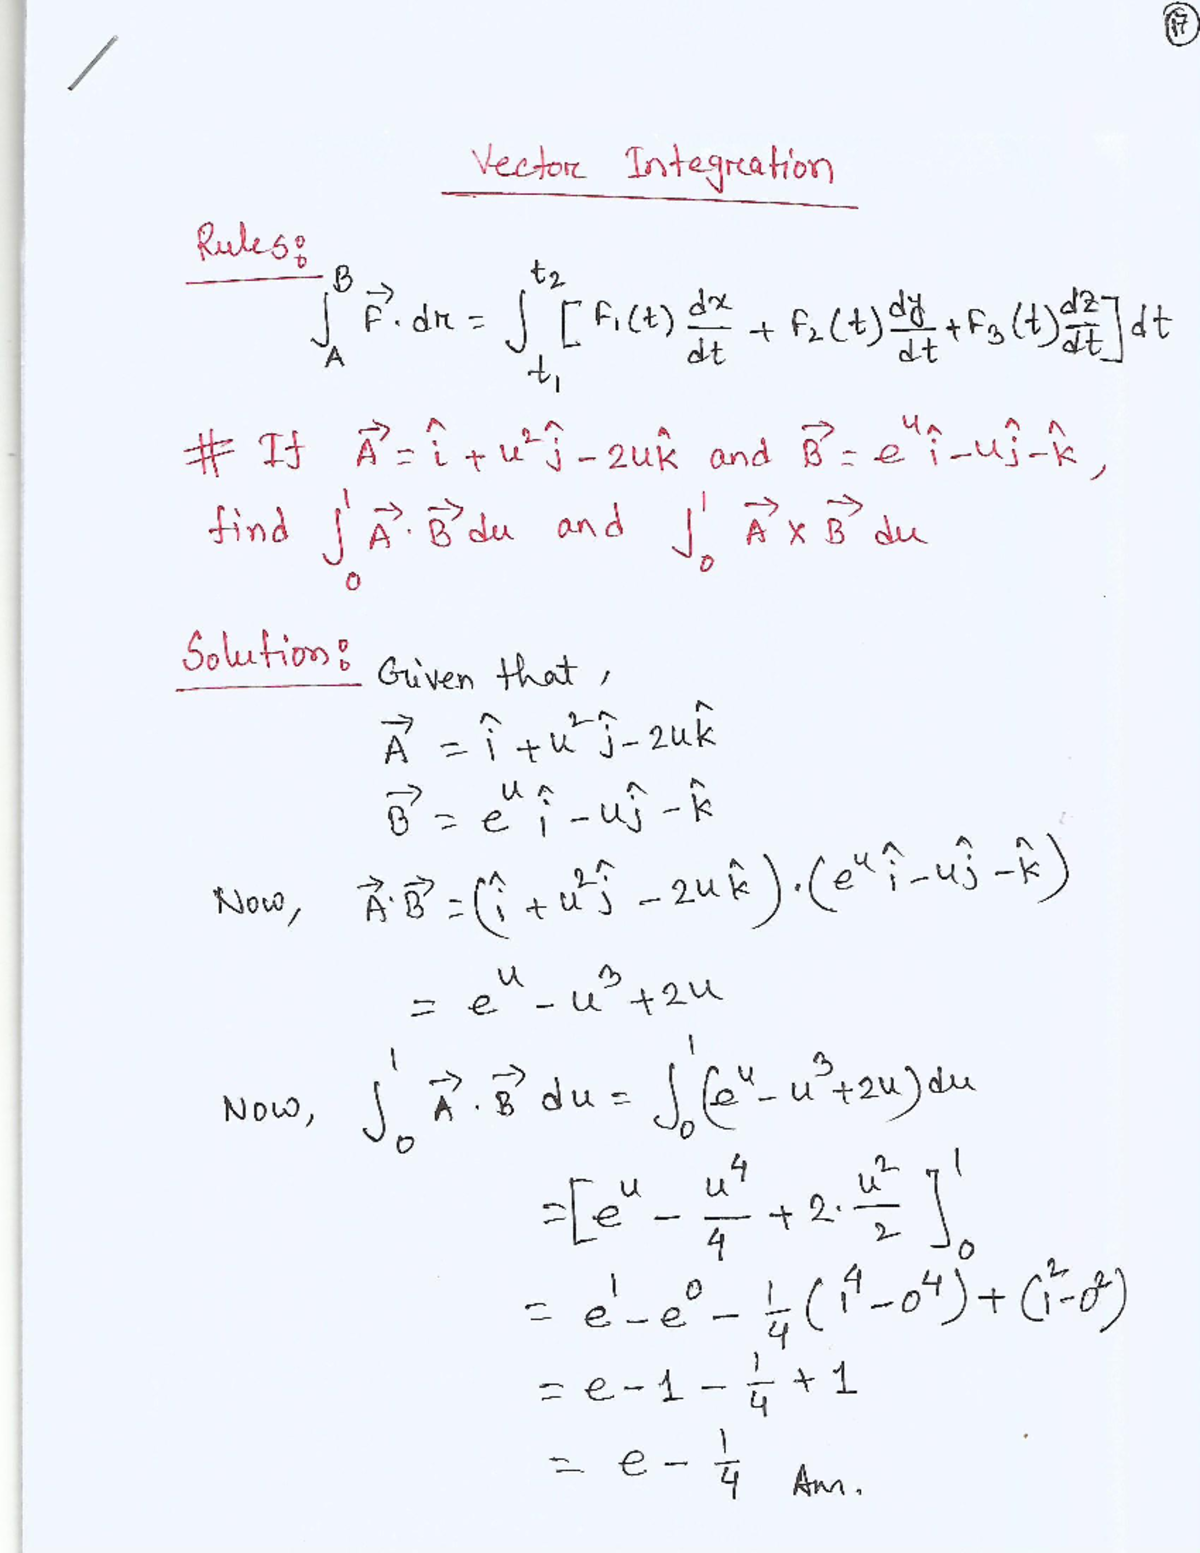 17
Vector Integration
Rules:
∫_A^B F⃗. dr = ∫_{t₁}^{t₂} [F₁(t) dx/dt + F₂(t) dy/dt + F₃(t) dz/dt] dt
# If A⃗ = î + u²ĵ - 2uk̂ and B⃗ = e^u î - uĵ - k̂,
find ∫_0^1 A⃗. B⃗ du and ∫_0^1 A⃗ × B⃗ du
Solution: Given that,
A⃗ = î + u²ĵ - 2uk̂
B⃗ = e^u î - uĵ - k̂
Now, A⃗.B⃗ = (î + u²ĵ - 2uk̂).(e^u î - uĵ - k̂)
= e^u - u³ + 2u
Now, ∫_0^1 A⃗. B⃗ du = ∫_0^1 (e^u - u³ + 2u) du
= [e^u - u⁴/4 + 2. u²/2]_0^1
= e¹ - e⁰ - 1/4 (1⁴ - 0⁴) + (1² - 0²)
= e - 1 - 1/4 + 1
= e - 1/4 Ans.